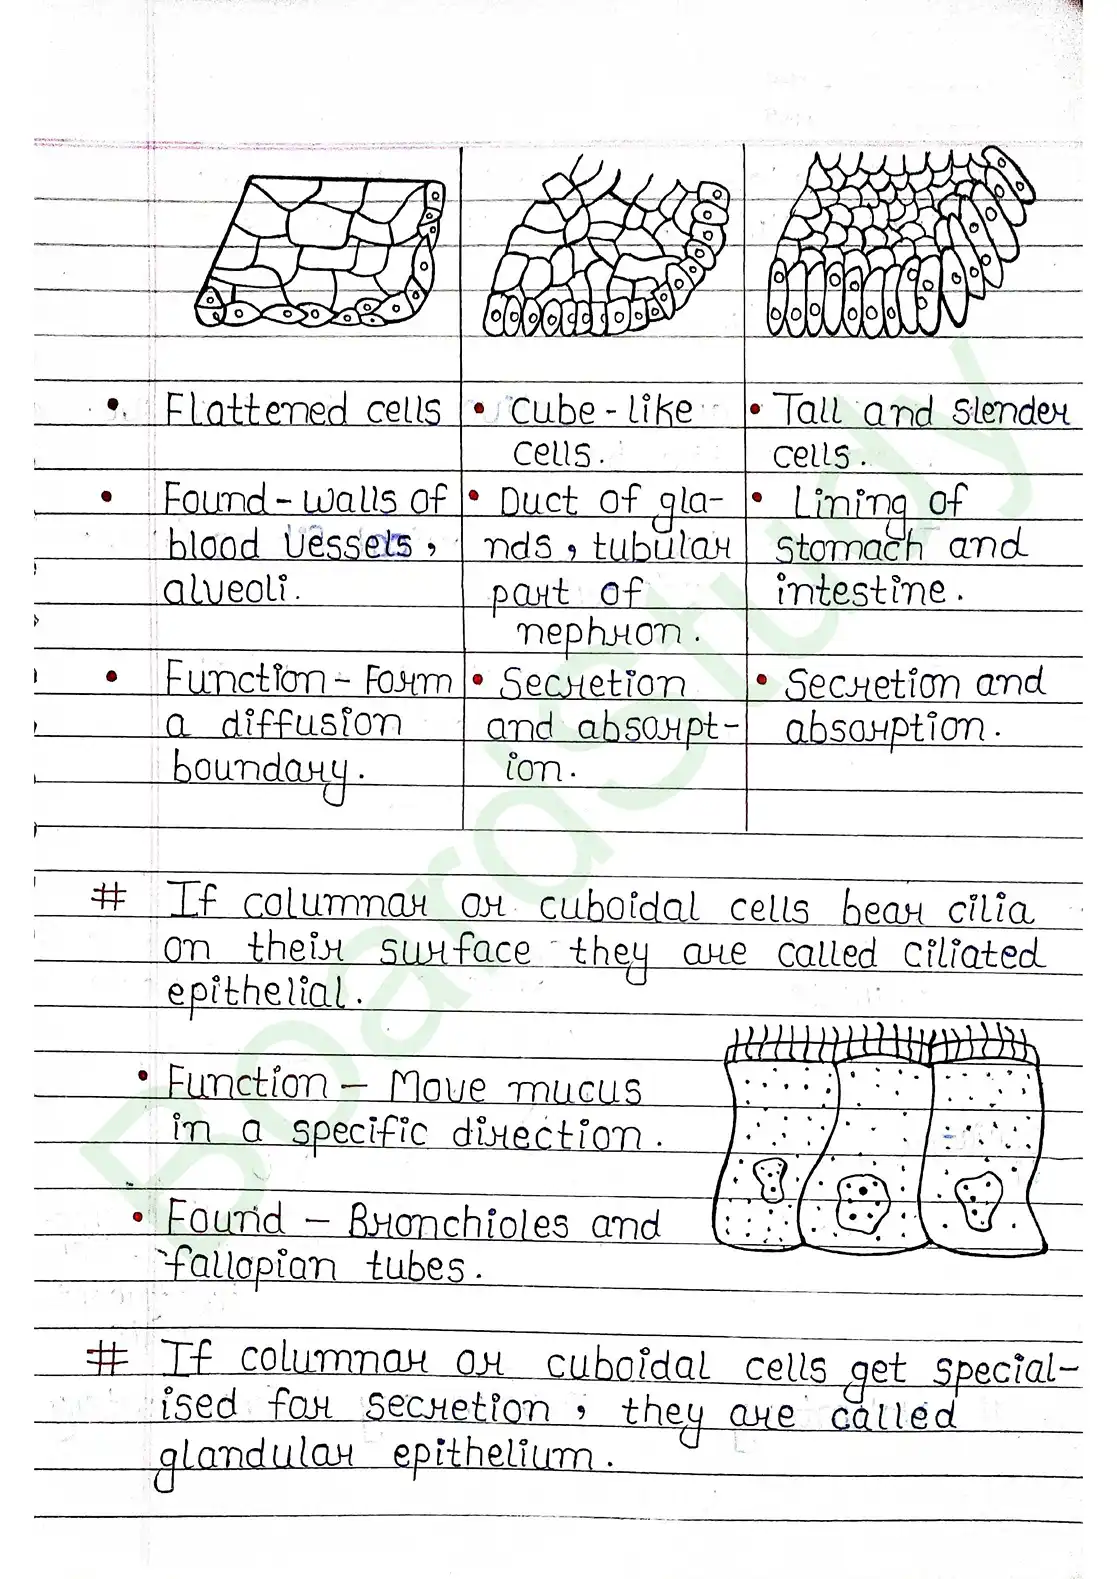 Flattened cells
Found - walls of
blood vessels,
alveoli.
Function - Form
a diffusion
boundary.
Cube - like
cells.
Duct of gla-
nds, tubular
part of
nephron.
Secretion
and absorpt-
ion.
Tall and slender
cells.
Lining of
stomach and
intestine.
Secretion and
absorption.
# If columnar or cuboidal cells bear cilia
on their surface they are called ciliated
epithelial.
Function - Move mucus
in a specific direction.
Found - Bronchioles and
fallopian tubes.
# If columnar or cuboidal cells get special-
ised for secretion, they are called
glandular epithelium.
BoardStudy